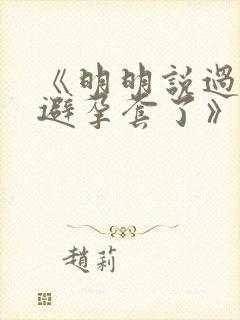 《明明説過
避孕套了》
趙莉